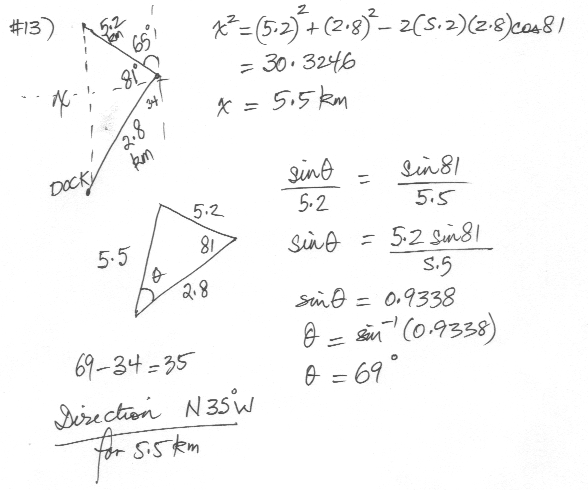 #13)
5.2 km
65°
81°
34
x
2.8 km
DOCK
x² = (5.2)² + (2.8)² - 2(5.2)(2.8)cos81
= 30.3246
x = 5.5 km
sinθ/5.2 = sin81/5.5
sinθ = 5.2 sin81/5.5
sinθ = 0.9338
θ = sin⁻¹(0.9338)
θ = 69°
5.2
5.5
81
θ
2.8
69-34=35
Direction N35°W
for 5.5 km